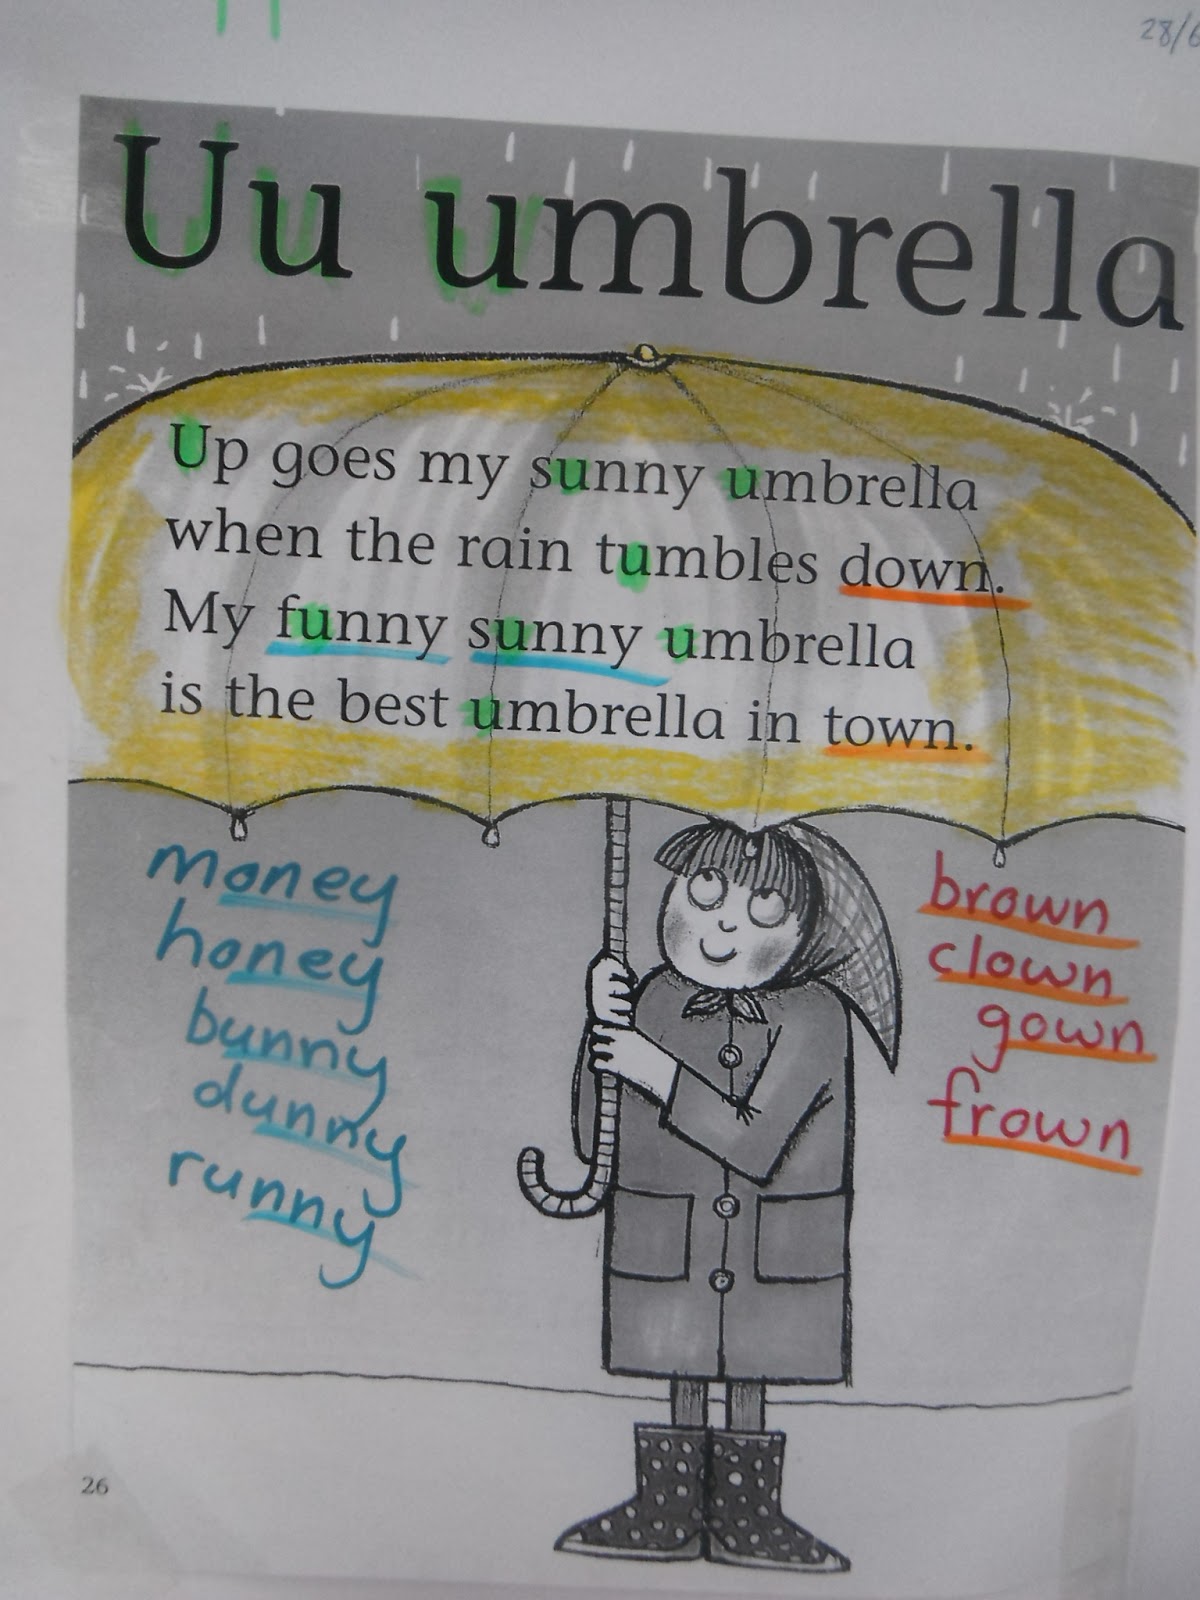 28/6
Uu umbrella
Up goes my sunny umbrella
when the rain tumbles down.
My funny sunny umbrella
is the best umbrella in town.
money
honey
bunny
dunny
runny
brown
clown
gown
frown
26